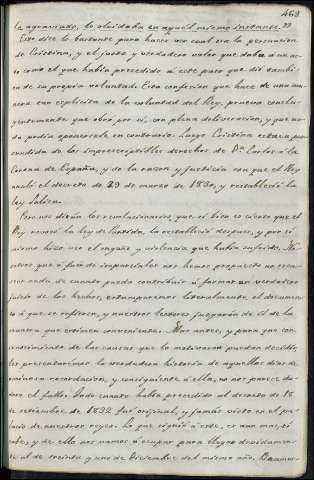 469
la agraviado, lo olvidaba en aquel mismo instante.??
Esto dice lo bastante para hacer ver cual era la persuasion
de Cristina, y el justo y verdadero valor que daba á un ac-
to como el que habia precedido á este paso que dió tambi-
en de su propia voluntad. Esta confesion que hace de una ma-
nera tan esplicita de la voluntad del Rey, prueba conclu-
yentemente que obró por sí, con plena deliberacion, y que na-
da podia oponersele en contrario. Luego Cristina estaba per-
suadida de los imprescriptibles derechos de Dn. Carlos á la
Corona de España, y de la razon y justicia con que el Rey
anuló el decreto de 29 de marzo de 1830, y restableció la
ley Salica.
Pero nos dirán los revolucionarios que si bien es cierto que el
Rey revocó la ley de Partida, la restableció despues, y por sí
mismo hizo ver el engaño y violencia que habia sufrido. No-
sotros que á fuer de imparciales nos hemos propuesto no esca-
sear nada de cuanto pueda contribuir á formar un verdadero
juicio de los hechos, estamparemos literalmente el documen-
to á que se refieren, y nuestros lectores juzgarán de él de la
manera que estimen conveniente. Mas antes, y para que con
conocimiento de las causas que lo motivaron puedan decidir,
les presentaremos la verdadera historia de aquellos dias de
ominosa recordacion, y consiguiente á ella, no nos parece du-
doso el fallo. Todo cuanto habia precedido al decreto de 18
de setiembre de 1832 fué original, y jamás visto en el pa-
lacio de nuestros reyes. Lo que siguió á este, es aun mas, si
cabe, y de ello nos vamos á ocupar para llegar debidamen-
te al de treinta y uno de Diciembre del mismo año.